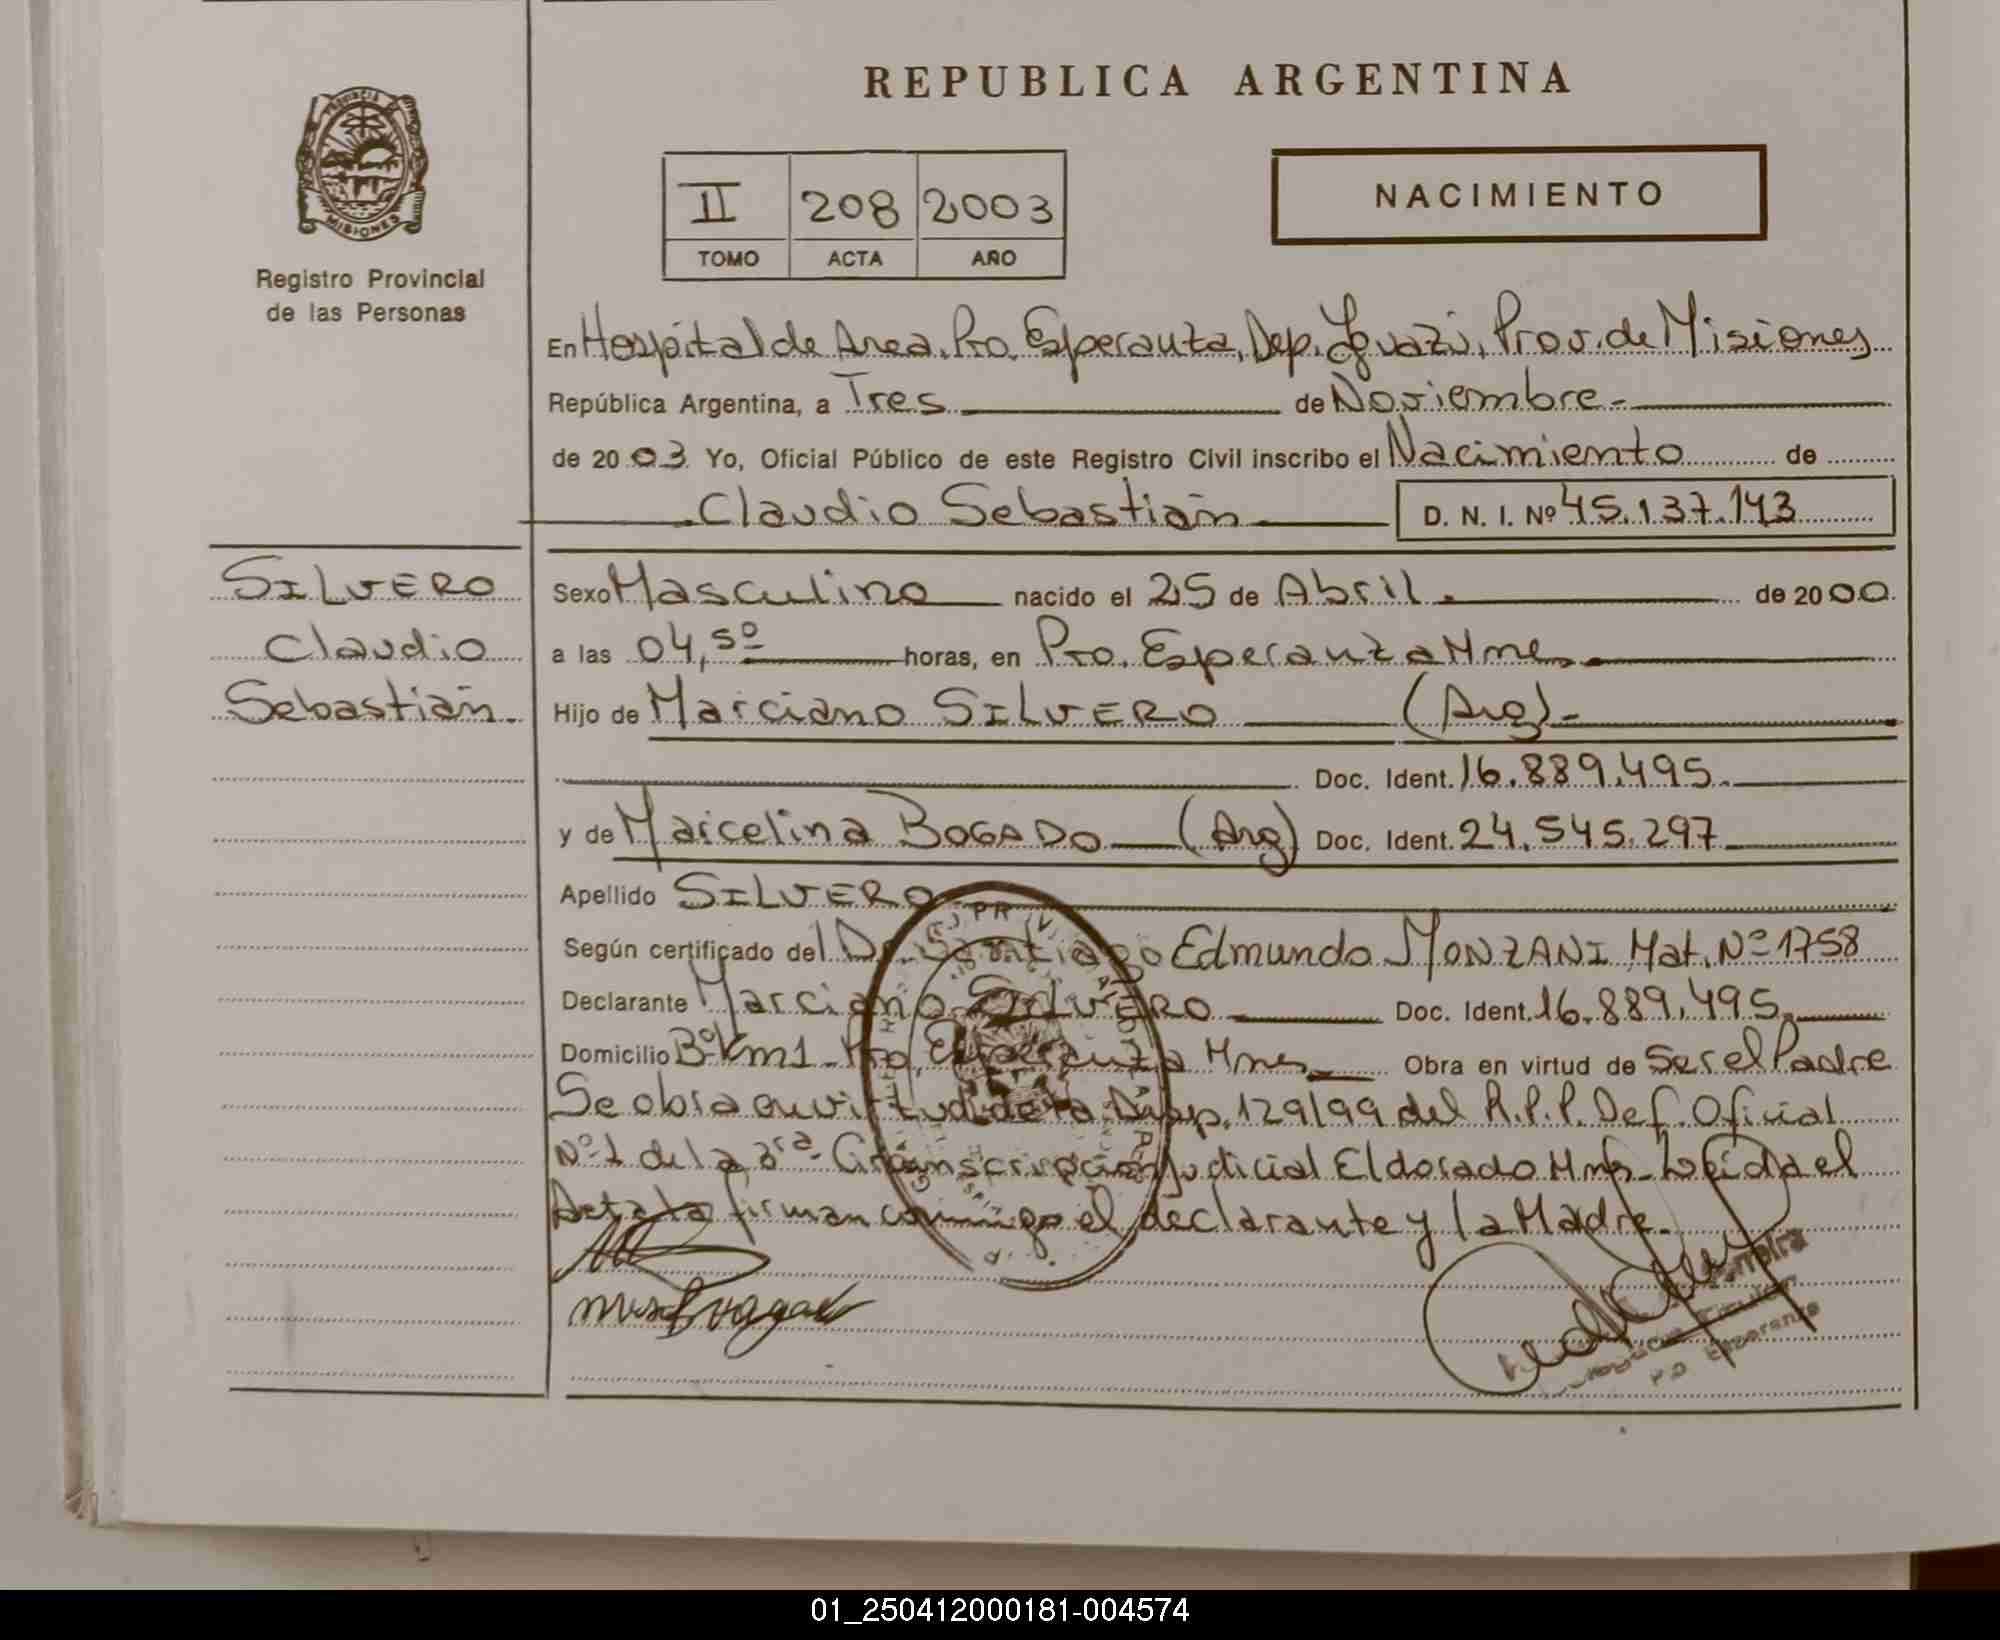 REPUBLICA ARGENTINA
PROVINCIA DE MISIONES
Registro Provincial
de las Personas
II 208 2003
TOMO ACTA AÑO
NACIMIENTO
En Hospital de Area. Pto. Esperanza, Dep. Iguazú, Prov. de Misiones
República Argentina, a Tres de Noviembre.
de 2003 Yo, Oficial Público de este Registro Civil inscribo el Nacimiento de
Claudio Sebastián D. N. I. Nº 45.137.143
SILVERO
Claudio
Sebastián.
Sexo Masculino nacido el 25 de Abril. de 2000
a las 04,50 horas, en Pto. Esperanza Mnes.
Hijo de Marciano SILVERO (Arg).
Doc. Ident. 16.889.495.
y de Marcelina BOGADO (Arg) Doc. Ident. 24.545.297
Apellido SILVERO
Según certificado del Dr. Santiago Edmundo MONZANI Mat. Nº 1758
Declarante Marciano SILVERO Doc. Ident. 16.889.495.
Domicilio Bº Km1 - Pto. Esperanza Mnes Obra en virtud de Ser el Padre
Se obra en virtud de la Disp. 129/99 del R.P.P. Def. Oficial
Nº 1 de la 3ra. Circunscripción Judicial Eldorado Mnes - Leída el
Acta la firman conmigo el declarante y la Madre.
01_250412000181-004574